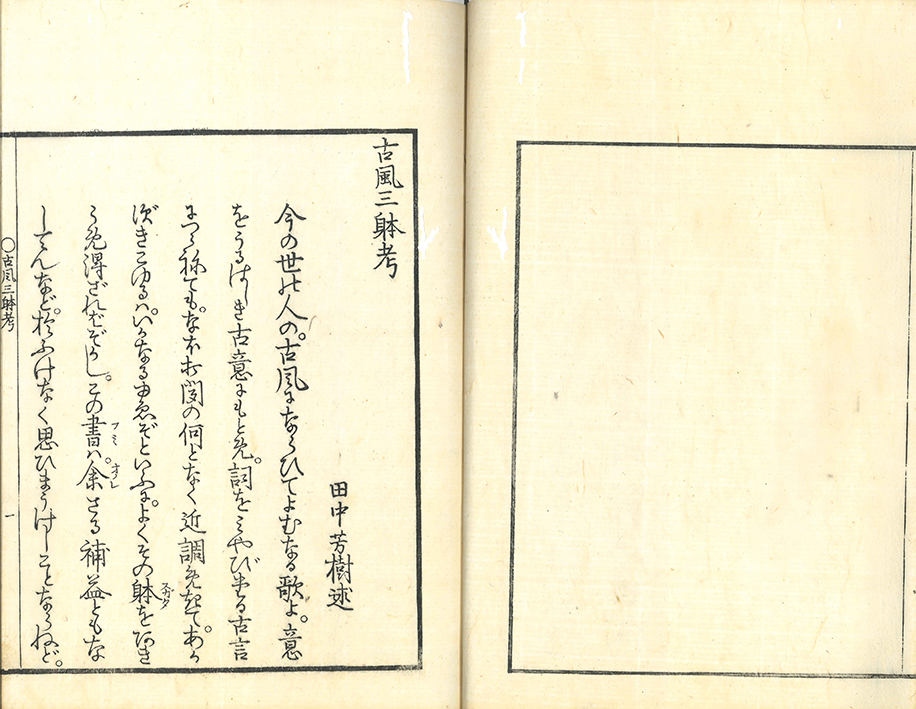 古風三躰考
田中芳樹述
今の世の人の。古風にならひてよむなる歌よ。意
をうるはしき古意にもとめ。詞をみやびたる古言
につらねても。なほ打聞の何となく近調めきて。あか
ずきこゆるハ。いかなるゆゑぞといふに。よくその躰をわき
スガタ
らめ得ざれバぞかし。この書ハ。余さる補益ともな
フミ
オノレ
してんなど。おふけなく思ひまうけしことならねど。
○古風三躰考
一